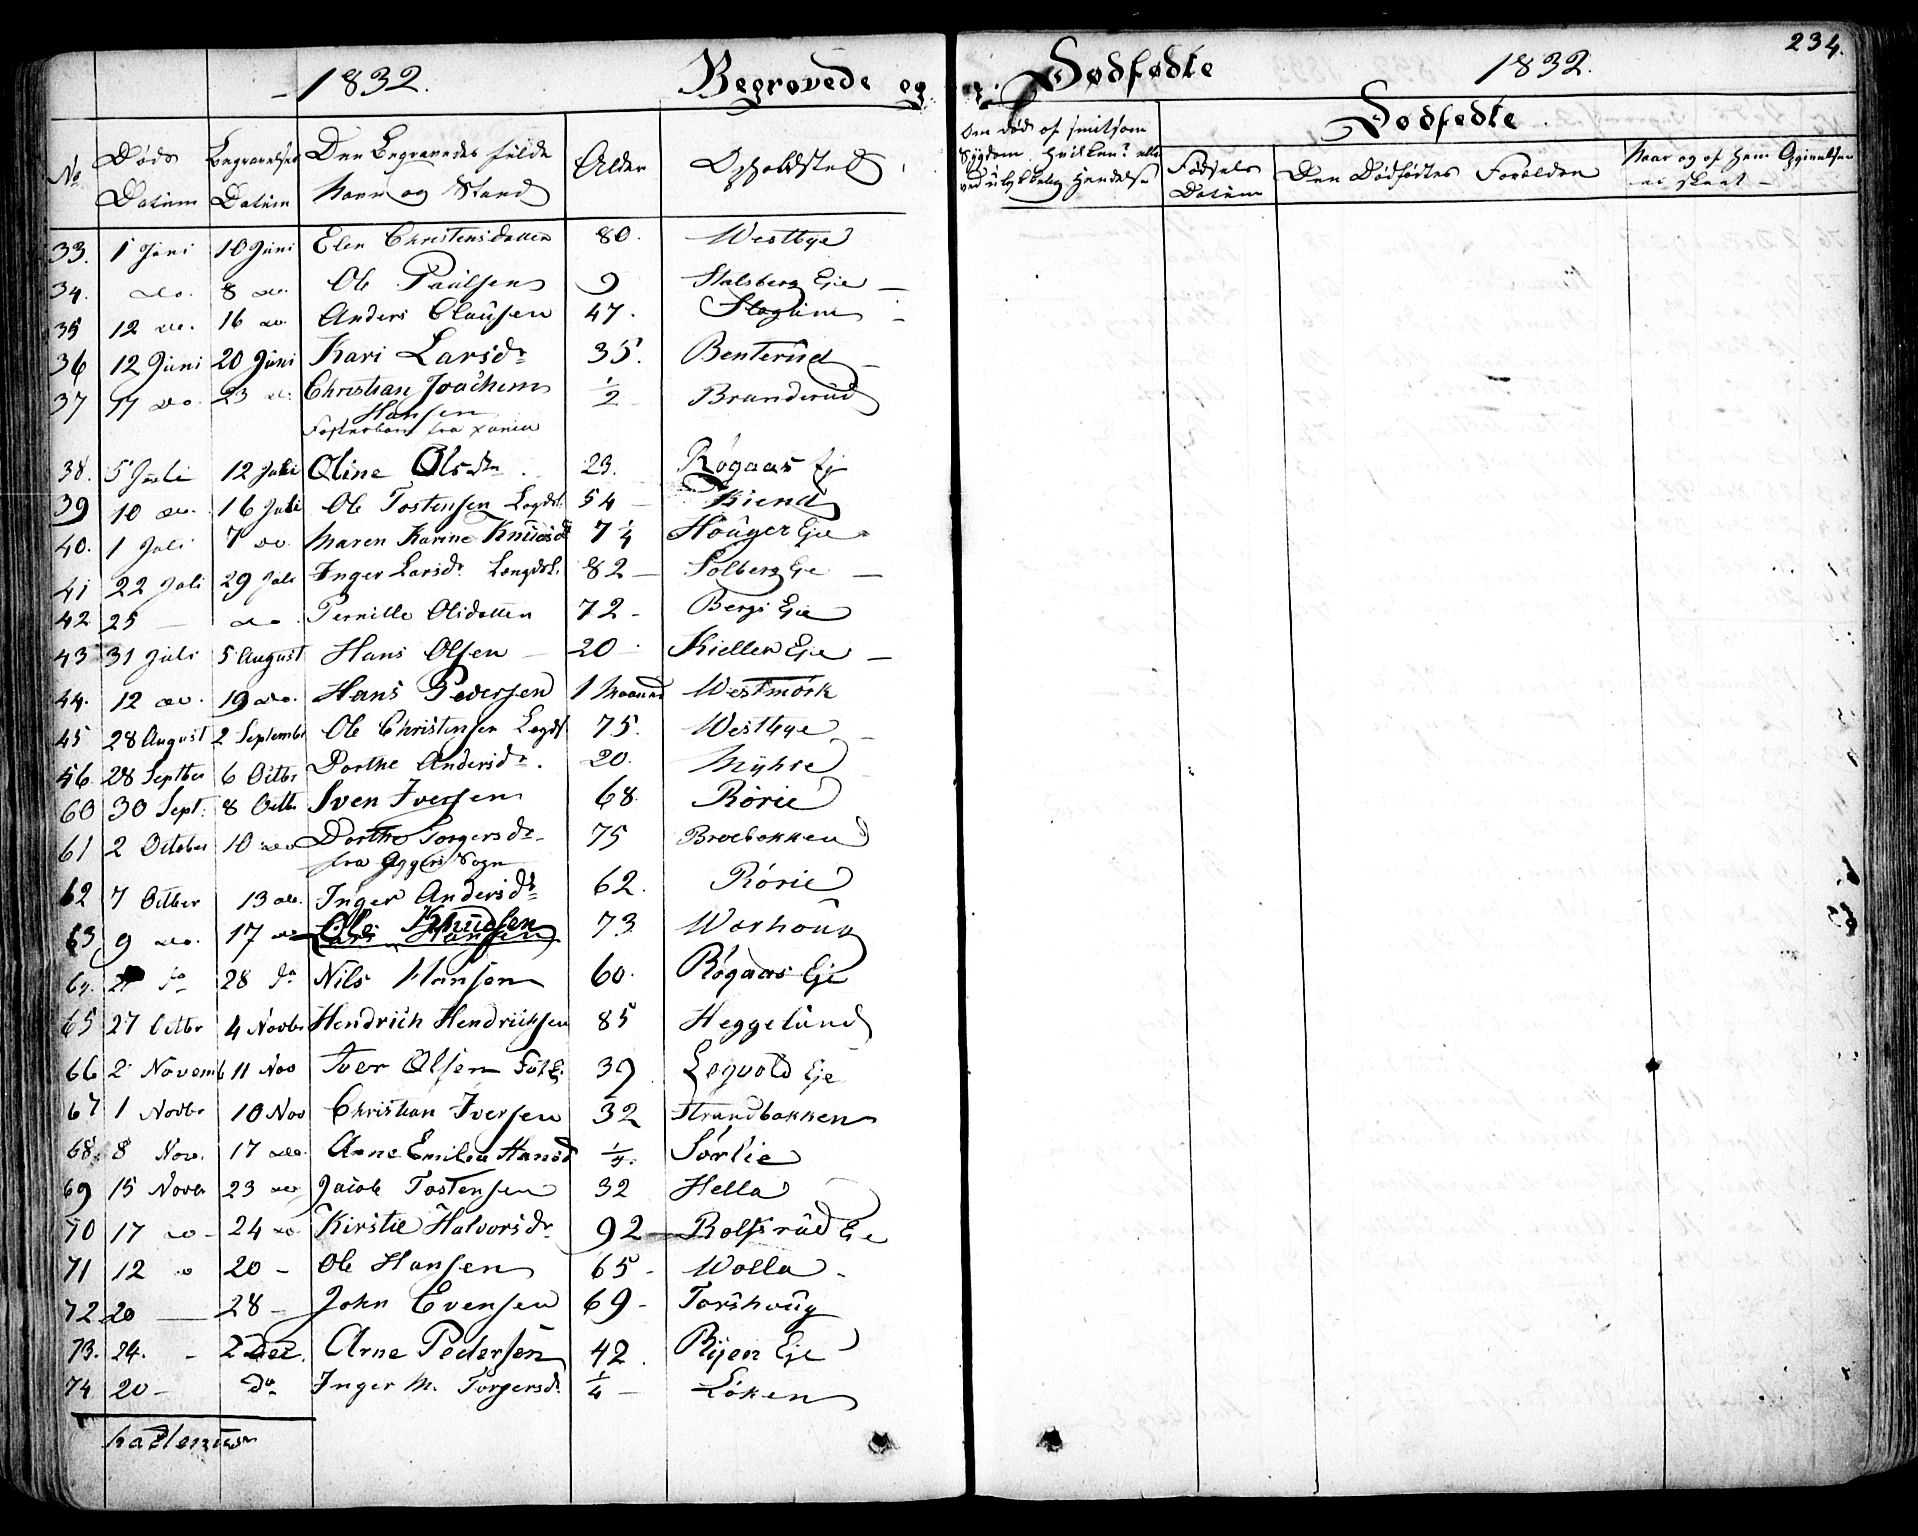 234.
1832. Begravede og Dødfødte 1832.
Dødfødte.
No Døds Datum Begravelses Datum Den Begravedes fulde Navn og Stand Alder Opholdsted
Om død af smitsom Sygdom, hvilken? eller ved ulykkelig Hendelse
Fødsels Datum Den Dødfødtes Forældre Naar og af hvem
33. 1 Juni 10 Juni Elen Christensdatter 80. Westbye
34. do. 8 do. Ole Paulsen 9 Stalsberg Eje
35 12 do. 16 do. Anders Clausen 47.
36 12 Juni 20 Juni Kari Larsdr 35. Benterud
37 17 do. 23 do. Christian Joachim ½ Branderud
Hansen
Fosterbarn fra Xania
38. 5 Juli 12 Juli Oline Olsdr. 23. Røgaas Ej
39 10 do. 16 Juli Ole Tostensen Legdsl. 54 Kiend
40. 1 Juli 7 do. Maren Karine Knudsd 7 ¼ Houger Eje
41 22 Juli 29 Juli Inger Larsdr. Legdsl. 82 Solberg Eje
42 25 do. Pernille Olsdatter 72 Bergs Eje
43 31 Juli 5 August Hans Olsen 20 Kieller Eje
44. 12 do. 19 do. Hans Pedersen 1 Maaned Westmork
45 28 August 2 Septembr Ole Christensen Legdsl 75. Westbye
56. 28 Septber 6 Octbr Dorthe Andersdr. 20. Myhre
60 30 Sept. 8 Octbr Sven Iversen 68. Rørie
61 2 October 10 do Dorthe Torgersdr 75 Broebakken
fra Aggers Sogn
62 7 Octber 13 do. Inger Andersdr 62. Rørie
63 9 do. 17 do Ole Knudsen 73 Worhoug
Lars Hansen
64. 28 do Nils Hansen 60. Røgaas Eje
65 27 Octbr 4 Novbr Hendrich Hendrichsen 85 Heggelund
66 2 Novemb 11 Nov Iver Olsen 39 Legvold Eje
67 1 Novbr 10 Nov Christian Iversen 32 Strandbakken
68. 8 Nov. 17 do. Anne Emilie Hansd ¼. Sørlie
69 15 Novbr 23 do Jacob Tostensen 32 Hella
70 17 do 24 do Kirstie Halvorsdr. 92 Rolfsrud Eje
71 12 do 20 Ole Hansen 65 Wolla
72 20 28 John Evensen 69 Torshoug
73. 24. 2 Dec. Arne Pedersen 42. Ryen Eje
74 20 do Inger M. Torgersdr. ¼ Løken